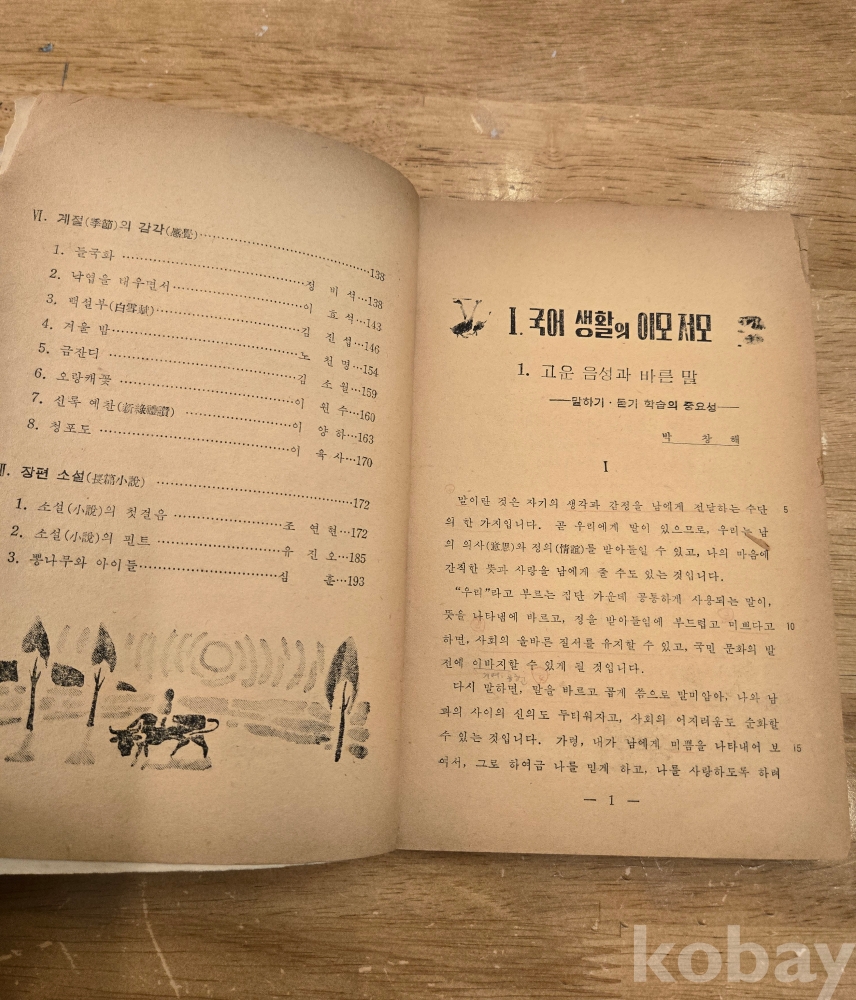 Ⅵ. 계절(季節)의 감각(感覺)……138
1. 들국화……정 비 석…138
2. 낙엽을 태우면서……이 효 석…143
3. 백설부(白雪賦)……김 진 섭…146
4. 겨울 밤……노 천 명…154
5. 금잔디……김 소 월…159
6. 오랑캐꽃……이 원 수…160
7. 신록 예찬(新綠禮讚)……이 양 하…163
8. 청포도……이 육 사…170
장편 소설(長篇小說)……172
1. 소설(小說)의 첫걸음……조 연 현…172
2. 소설(小說)의 힌트……유 진 오…185
3. 뽕나무와 아이들……심 훈…193
Ⅰ. 국어 생활의 이모저모
1. 고운 음성과 바른 말
──말하기·듣기 학습의 중요성──
박 창 해
Ⅰ
말이란 것은 자기의 생각과 감정을 남에게 전달하는 수단 5
의 한 가지입니다. 곧 우리에게 말이 있으므로, 우리는 남
의 의사(意思)와 정의(情誼)를 받아들일 수 있고, 나의 마음에
간직한 뜻과 사랑을 남에게 줄 수도 있는 것입니다.
“우리”라고 부르는 집단 가운데 공통하게 사용되는 말이,
뜻을 나타냄에 바르고, 정을 받아들임에 부드럽고 미쁘다고 10
하면, 사회의 올바른 질서를 유지할 수 있고, 국민 문화의 발
전에 이바지할 수 있게 될 것입니다.
다시 말하면, 말을 바르고 곱게 씀으로 말미암아, 나와 남
과의 사이의 신의도 두터워지고, 사회의 어지러움도 순화할
수 있는 것입니다. 가령, 내가 남에게 미쁨을 나타내어 보 15
여서, 그로 하여금 나를 믿게 하고, 나를 사랑하도록 하려
— 1 —
kobay